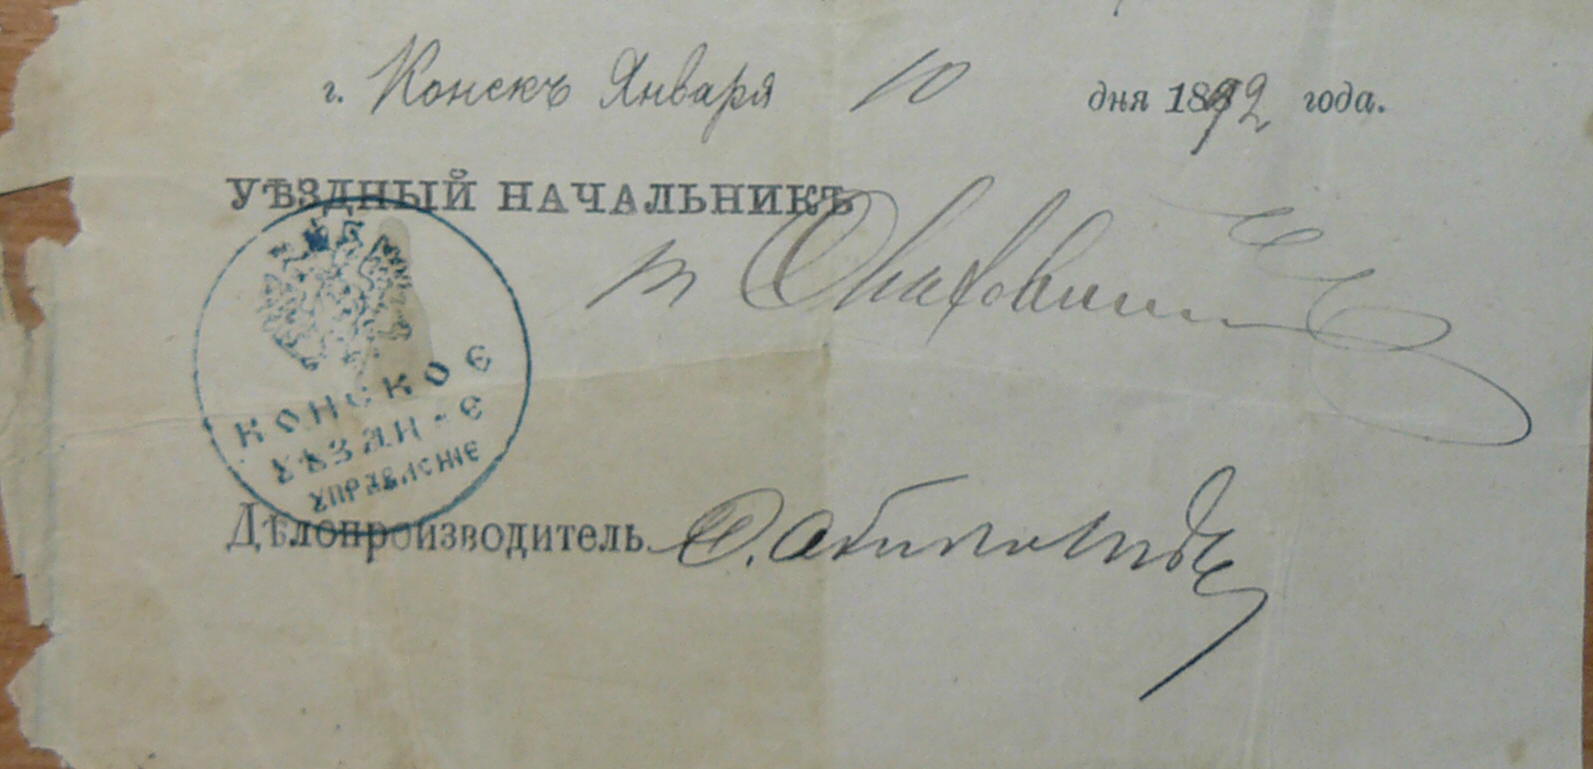 г. Конскъ Января 10 дня 1892 года.
УѢЗДНЫЙ НАЧАЛЬНИКЪ
КОНСКОЕ
УѢЗДНОЕ
УПРАВЛЕНІЕ
Дѣлопроизводитель